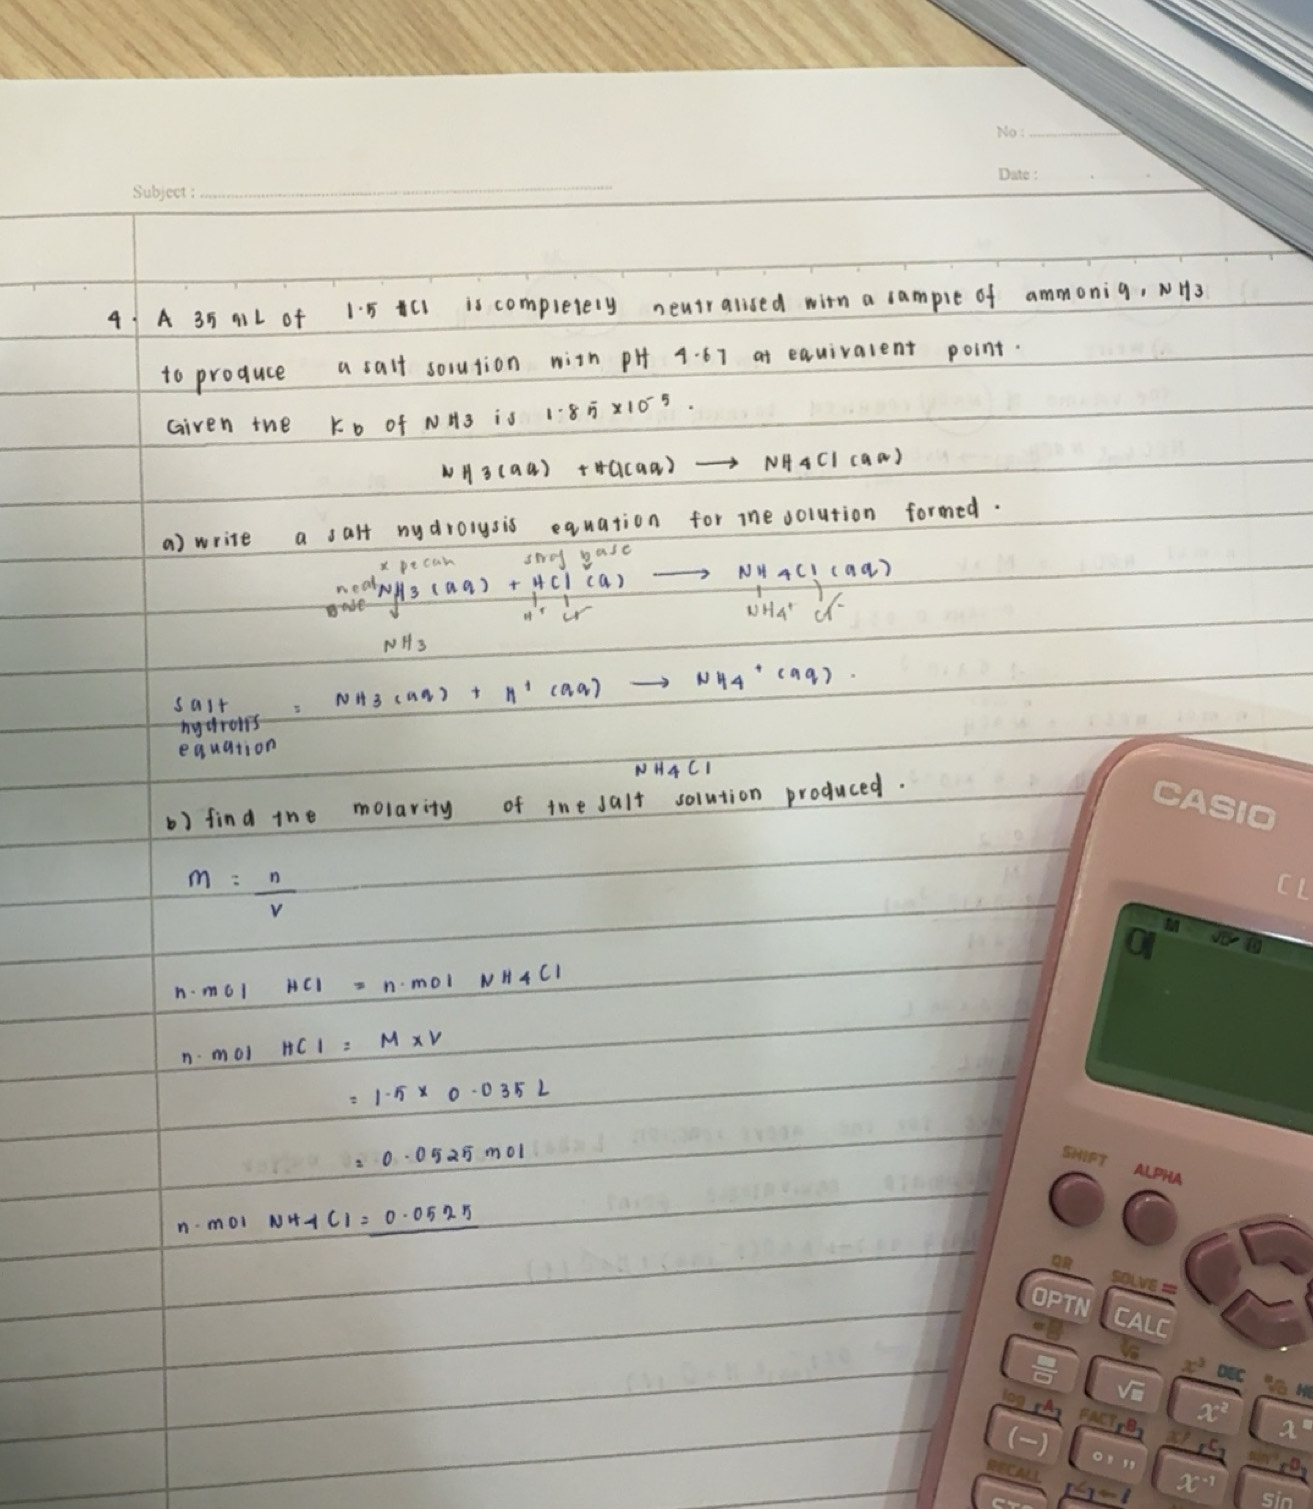 No :
Subject :
Date :
4. A 35 mL of 1.5 HCl is completely neutralised with a sample of ammonia, NH3
to produce a salt solution with pH 4.67 at equivalent point.
Given the Kb of NH3 is 1.85 x10-5.
NH3(aq) + HCl(aq) → NH4Cl (aq)
a) write a salt hydrolysis equation for the solution formed.
x pecah base
NH3 (aq) + HCl (a) → NH4Cl (aq)
base H+ Cl- NH4+ Cl-
NH3
salt = NH3 (aq) + H+ (aq) → NH4+ (aq).
equation
NH4Cl
b) find the molarity of the salt solution produced.
M = n
V
n.mol HCl = n.mol NH4Cl
n.mol HCl = M x V
= 1.5 x 0.035 L
= 0.0525 mol
n.mol NH4Cl = 0.0525
CASIO
CL
SHIFT ALPHA
QR SOLVE =
OPTN CALC
√ x² DEC
x²
log FACT
(−) x⁻¹ sin
RECALL